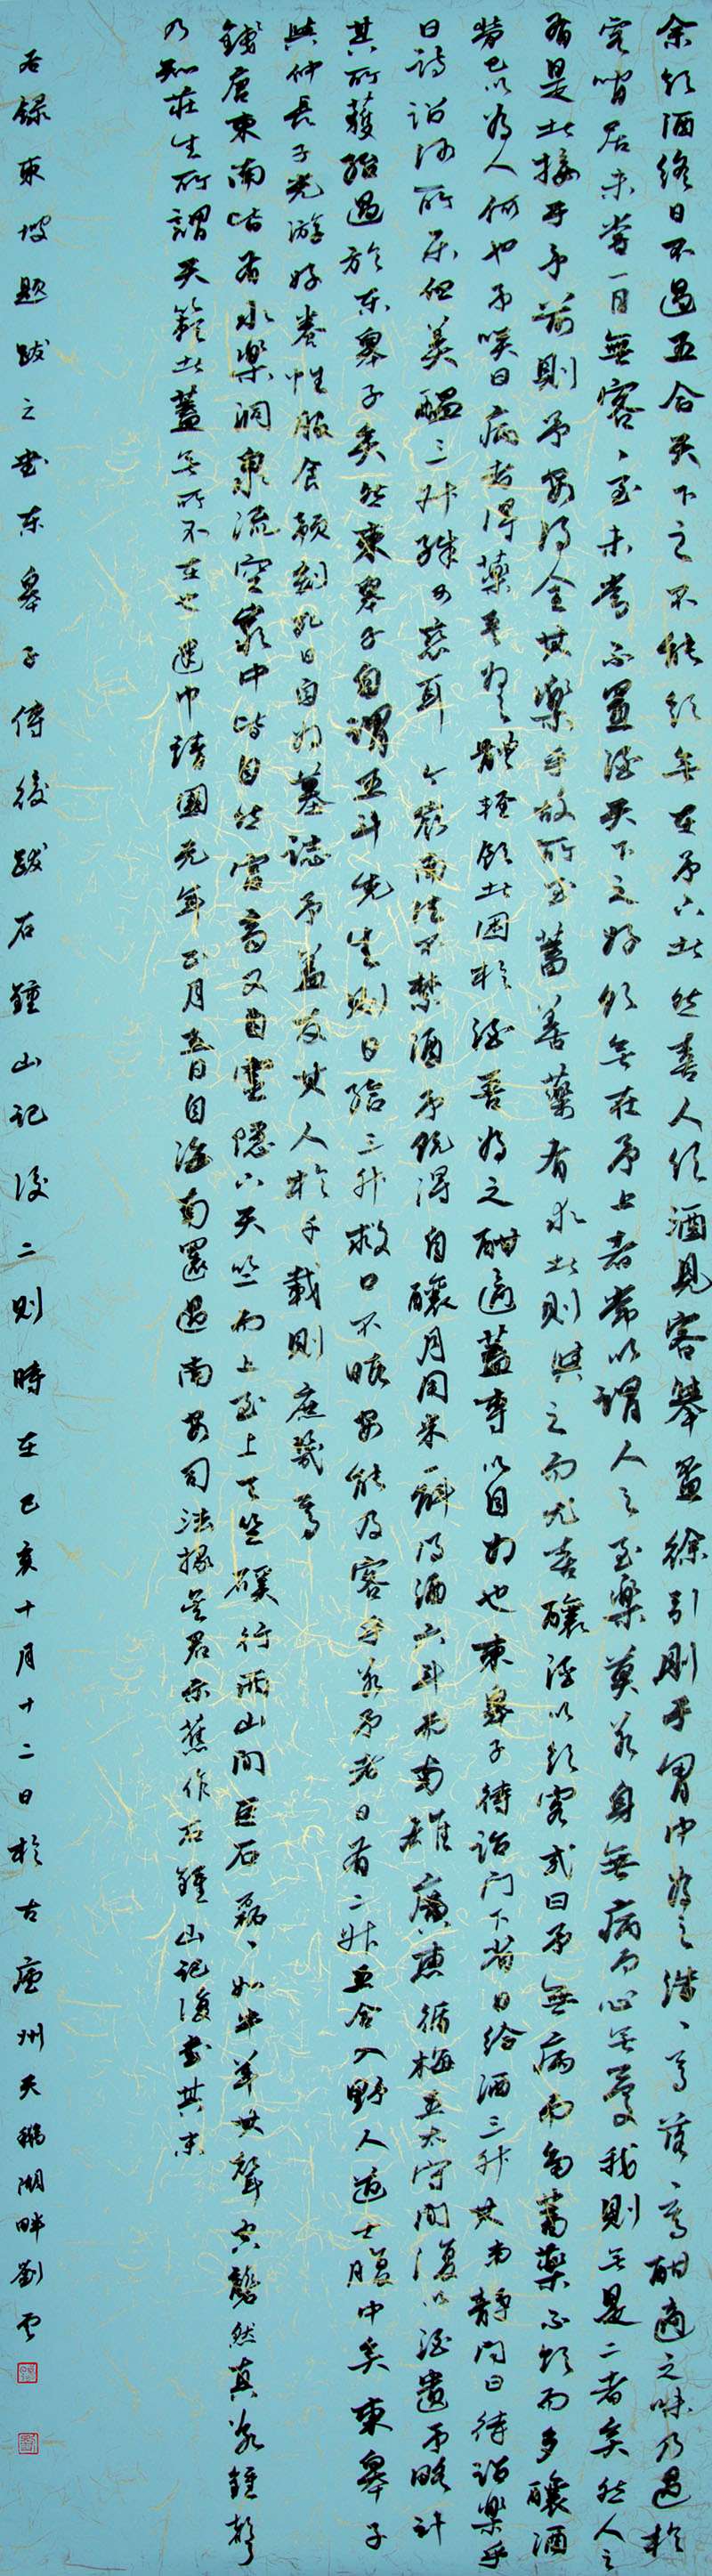 余飲酒終日不過五合天下之不能飲無在予下者然喜人飲酒見客舉盃徐引則予胷中為之浩、焉落、焉酣適之味乃過於
客閒居未嘗一日無客、至未嘗不置酒天下之好飲無在予上者常以謂人之至樂莫若身無病而心無憂我則無是二者矣然人之
有是者接于予前則予安得全其樂乎故所至蓄善藥有求者則與之而尤喜釀酒以飲客或曰予無病而多蓄藥不飲而多釀酒
勞己以為人何也予笑曰病者得藥吾為之體輕飲者困於酒吾為之酣適蓋專以自為也東皋子待詔門下省日給酒三升其弟靜問曰待詔樂乎
曰待詔何所樂但美醞三升殊可戀耳今嶺南法不禁酒予既得自釀月用米一斛得酒六斗而南雄廣惠循梅五太守間復以酒遺予略計
其所獲殆過於東皋子矣然東皋子自謂五斗先生則日給三升救口不暇安能及客乎若予者日有二升五合入野人道士腹中矣東皋子
與仲長子光游好養性服食預刻死日自為墓誌予蓋友其人於千載則庶幾焉
錢唐東南皆有水樂洞泉流空巖中皆自然宮商又自靈隱下天竺而上至上天竺磎行兩山間巨石磊、如牛羊其聲空礱然真若鐘聲
乃知莊生所謂天籟者蓋無所不在也建中靖國元年正月五日自海南還過南安司法掾吳君示舊作石鐘山記復書其末
右錄東坡題跋之書東皋子傳後跋石鐘山記後二則時在己亥十月十二日於古廬州天鵝湖畔劉雲